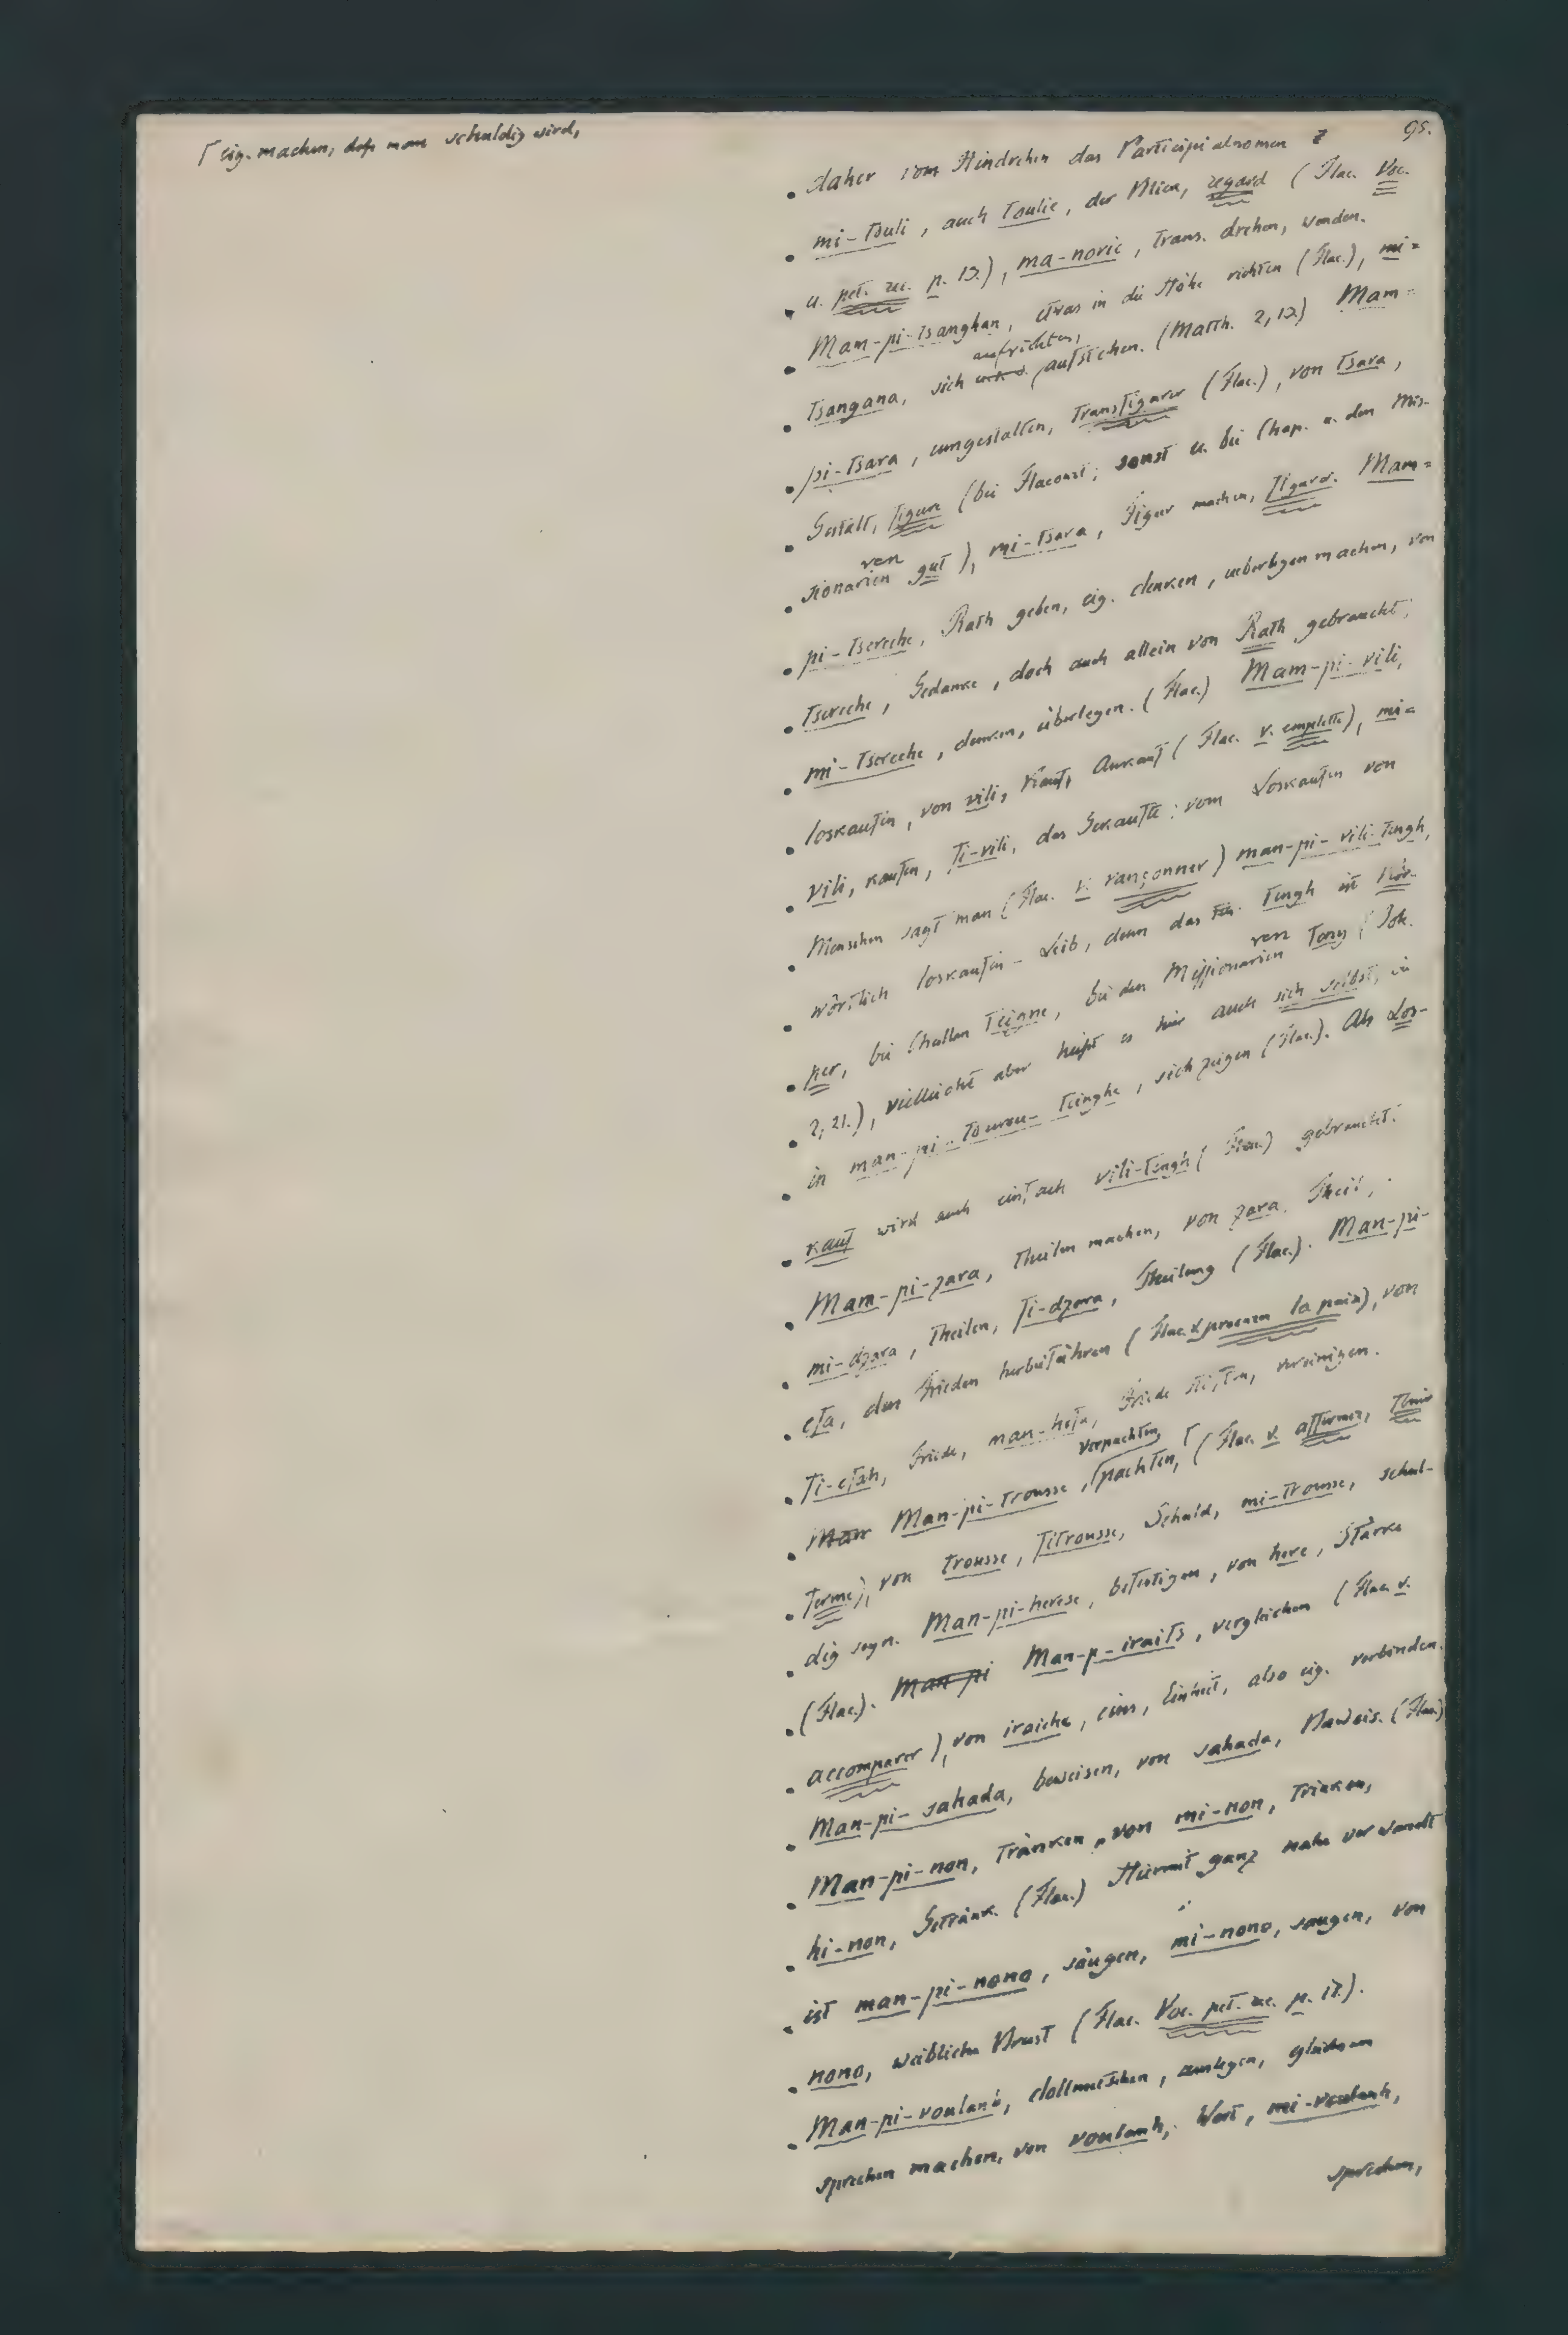 95.
⌈ eig. machen, daß man schuldig wird,
daher vom Hindrehen das Participialnomen
mi-tsuli, auch Toulic, der Blick, regard (Flac. Voc.
u. pet. rec. p. 13.), ma-noric, trans. drehen, wenden.
Mam-pi-tsanghan, etwas in die Höhe richten (Flac.), mi-
aufrichten,
tsangana, sich aufstehen. (Matth. 2, 13.) Mam-
pi-tsara, umgestalten, transfigurer (Flac.), von tsara,
Gestalt, figure (bei Flacourt; sonst u. bei Chap. u. den Mis-
ren
sionarien gut), mi-tsara, Figur machen, figurer. Mam-
pi-tsereche, Rath geben, eig. denken, ueberlegen machen, von
tsereche, Gedanke, doch auch allein von Rath gebraucht,
mi-tsereche, denken, überlegen. (Flac.) Mam-pi-vili,
loskaufen, von vili, Kauf, Ankauf (Flac. v. emplette), mi-
vili, kaufen, fi-vili, das Gekaufte; vom Loskaufen von
Menschen sagt man (Flac. v. rançonner) man-pi-vili-tengh,
wörtlich loskaufen-Leib, denn das tengh ist Kör-
ren
per, bei Challan Teinne, bei den Missionarien Teny (Joh.
2, 21.), vielleicht aber heißt es hier auch sich selbst, wie
in man-pi-tourou-teinghe, sich zeigen (Flac.). Als Los-
kauf wird auch einfach vili-tengh (Flac.) gebraucht.
Mam-pi-zara, theilen machen, von zara, Theil,
mi-dzara, theilen, fi-dzara, Theilung (Flac.). Man-pi-
efa, den Frieden herbeiführen (Flac. v. procurer la paix), von
fi-efah, Friede, man-hefa, Friede stiften, vereinigen.
verpachten,
Man Man-pi-trousse, ⌈pachten, ⌈ (Flac. v. affermer, tenir
ferme), von trousse, fitrousse, Schuld, mi-trousse, schul-
dig seyn. Man-pi-herese, befestigen, von here, Stärke
(Flac.). Man-pi Man-p-iraits, vergleichen (Flac. v.
accomparer), von iraiche, eins, Einheit, also eig. verbinden.
Man-pi-sahada, beweisen, von sahada, Beweis. (Flac.)
Man-pi-non, tränken, von mi-non, trinken,
hi-non, Getränk. (Flac.) Hiermit ganz nahe verwandt
ist man-pi-nono, säugen, mi-nono, saugen, von
nono, weibliche Brust (Flac. Voc. pet. rec. p. 17.).
Man-pi-voulanh, dollmetschen, auslegen, gleichsam
sprechen machen, von voulanh, Wort, mi-voulanh,
sprechen,